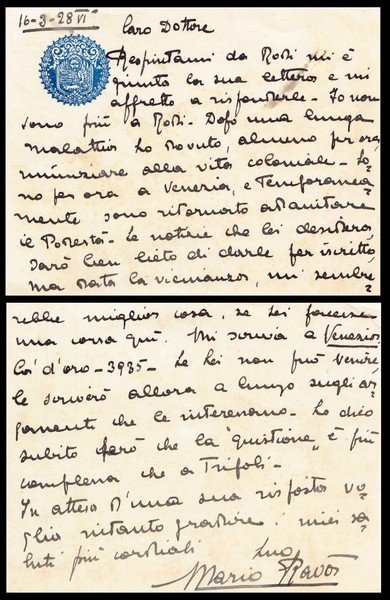 16-3-28 VI
Caro Dottore
Respintami da Rodi mi è
giunta la sua lettera e mi
affretto a risponderle - Io non
sono più a Rodi. Dopo una lunga
malattia ho dovuto, almeno per ora
rinunziare alla vita coloniale - So=
no per ora a Venezia, e temporanea=
mente sono ritornato ad abitare
il
Le notizie che lei desidera,
sarò ben lieto di darle per iscritto,
ma data la vicinanza, mi sembre=
rebbe miglior cosa, se lei facesse
una corsa quì. Mi scriva a Venezia
Ca' d'oro - 3935 - Se lei non può venire
le scriverò allora a lungo sugli ar=
gomenti che le interessano - Le dico
subito però che la "quistione" è più
complessa che a Tripoli -
In attesa d'una sua risposta vo=
glia intanto gradire i miei sa=
luti più cordiali
Suo
Mario